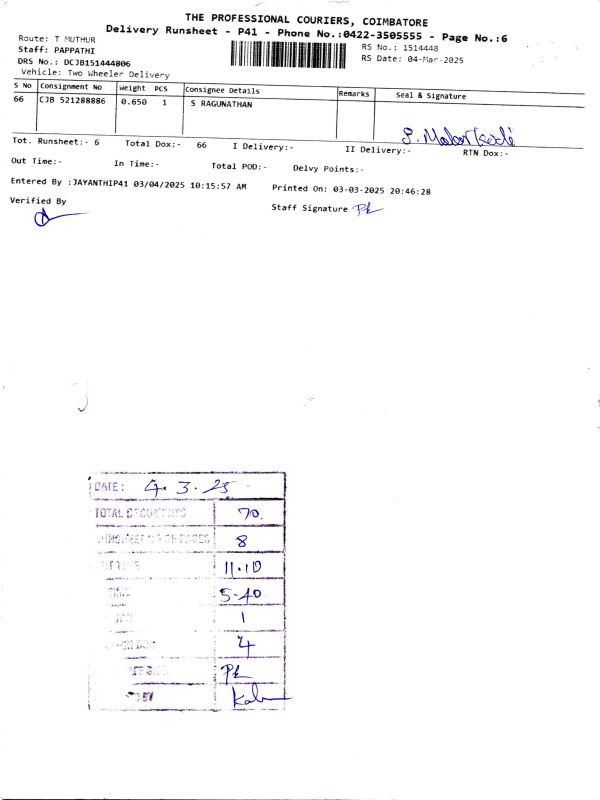 THE PROFESSIONAL COURIERS, COIMBATORE
Delivery Runsheet - P41 - Phone No.:0422-3505555 - Page No.:6
Route: T MUTHUR
RS No.: 1514448
Staff: PAPPATHI
RS Date: 04-Mar-2025
DRS No.: DCJB151444806
Vehicle: Two Wheeler Delivery
S No Consignment No Weight PCS Consignee Details Remarks Seal & Signature
66 CJB 521288886 0.650 1 S RAGUNATHAN
Tot. Runsheet:- 6 Total Dox:- 66 I Delivery:- II Delivery:- RTN Dox:-
Out Time:- In Time:- Total POD:- Delvy Points:-
Entered By :JAYANTHIP41 03/04/2025 10:15:57 AM Printed On: 03-03-2025 20:46:28
Verified By Staff Signature
DATE: 4.3.25
TOTAL DOCUMENTS 70.
8
11.10
5-40
1
4